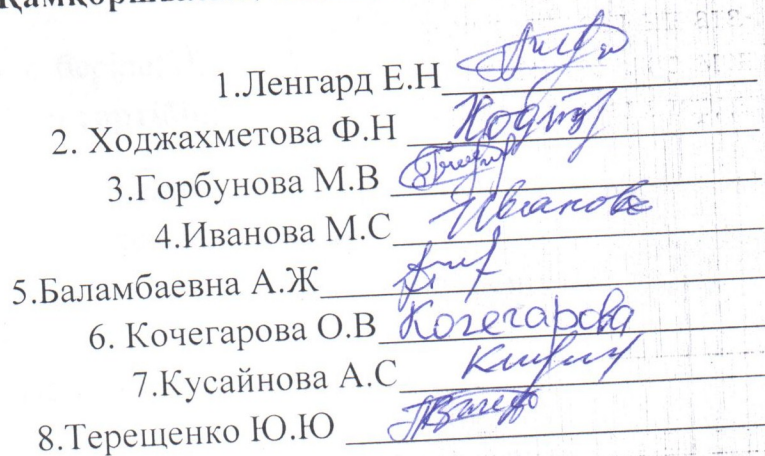 1.Ленгард Е.Н
2. Ходжахметова Ф.Н
3.Горбунова М.В
4.Иванова М.С Иванова
5.Баламбаевна А.Ж
6. Кочегарова О.В Кочегарова
7.Кусайнова А.С
8.Терещенко Ю.Ю